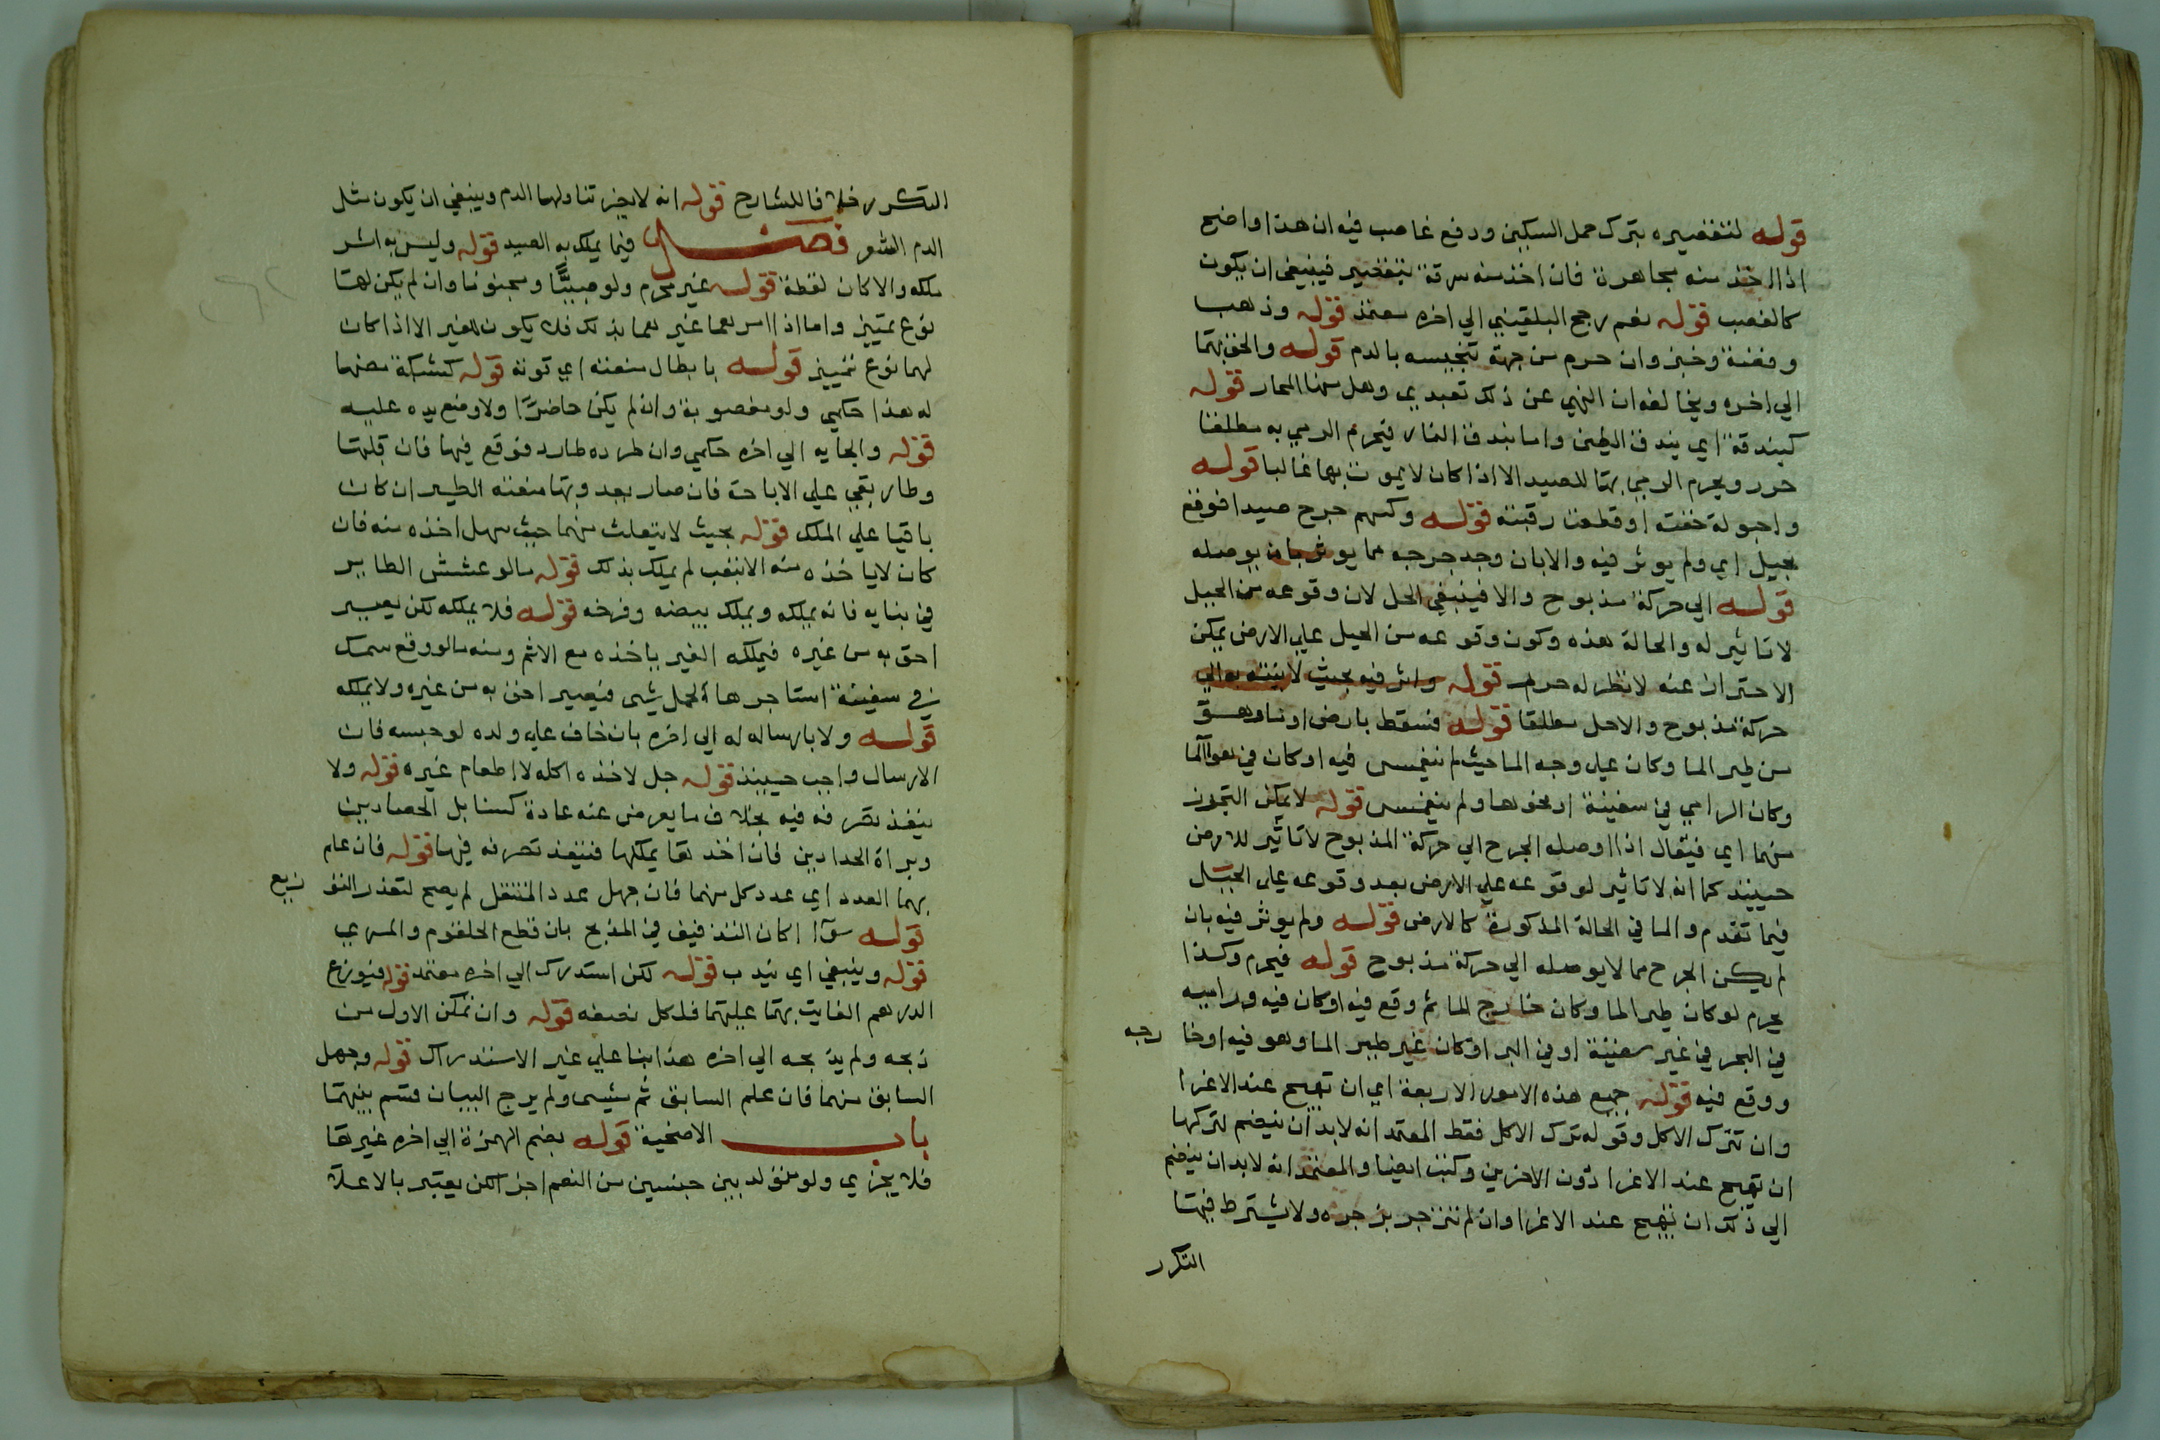 قوله لتقصيره بترك حمل السكين ودفع غاصب فيه ان هذا واضح
اذا اخذ منه مجاهرة فان اخذ منه سرقة بتقصير فينبغي ان يكون
كالغصب قوله نعم رجح البلقيني الي اخره معتمد قوله وذهب
وفضة وخبز وان حرم من جهة تنجيسه بالدم قوله والحق بهما
الي اخره ويخالفه ان النهي عن ذلك تعبدي وهل منا المحار قوله
كبندقة اي بندق الطين واما بندق النار فيحرم الرمي به مطلقا
حرر ويحرم الرمي بها للصيد الا اذا كان لا يموت بها غالبا قوله
واحبولة خنقته او قطعت رقبته قوله وكسهم جرح صيدا فوقع
بجبل اي ولم يوثر فيه والا بان وجد جرحه مما يوثر بان يوصله
قوله الي حركة مذبوح والا فينبغي الحل لان وقوعه من الجبل
لا تاثير له والحالة هذه وكون وقوعه من الجبل علي الارض يمكن
الاحتراز عنه لا نظر له حرم قوله واثر فيه بحيث لا ينته به الي
حركة مذبوح والا حل مطلقا قوله فسقط بارض او ما وهو
من طير الما وكان علي وجه الما حيث لم ينغمس فيه او كان في هوا الما
وكان الرامي في سفينة او نحوها ولم ينغمس قوله لا يمكن التحرز
منهما اي فيقال اذا اوصله الجرح الي حركة المذبوح لا تاثير للارض
حينيذ كما انه لا تاثير لوقوعه علي الارض بعد وقوعه علي الجبل
فيما تقدم والما في الحالة المذكورة كالارض قوله ولم يوثر فيه بان
لم يكن الجرح مما لا يوصله الي حركة مذبوح قوله فيحرم وكذا
يحرم لو كان طير الما وكان خارج الما ثم وقع فيه او كان فيه وراميه
في البحر في غير سفينة او في البر او كان غير طير الما وهو فيه او خا رجه
ووقع فيه قوله جميع هذه الامور الاربعة اي ان تهيج عند الاغرا
وان تترك الاكل وقوله ترك الاكل فقط المعتمد انه لا بد ان ينضم لتركها
ان تهيج عند الاغرا دون الاخرين وكتب ايضا والمعتمد انه لا بد ان ينضم
الي ذلك ان تهيج عند الاغرا وان لم تنزجر بزجره ولا يشترط فيها
التكرر
التكرر خلافا للشارح قوله انه لا يجز تناولها الدم وينبغي ان يكون مثل
الدم الشعر فصل فيما يملك به الصيد قوله وليس به اثر
ملكه والا كان لقطة قوله غير محرم ولو صبيًّا ومجنونا وان لم يكن لهما
نوع تمييز واما اذا امرهما غيرهما بذلك فلا يكون للغير الا اذا كان
لهما نوع تمييز قوله بابطال منعته اي قوته قوله كشبكة نصبها
له هذا حكمي ولو مغصوبة وان لم يكن حاضرًا ولا وضع يده عليه
قوله والجايه الي اخره حكمي وان طرده طارد فوقع فيها فان قلبها
وطار بقي علي الاباحة فان صار بعد وبها منعته الطير ان كان
باقيا علي الملك قوله بحيث لا يتفلت منهما حيث سهل اخذه منه فان
كان لا ياخذه منه الا بتعب لم يملك بذلك قوله ما لو عشش الطاير
في بنايه فانه يملكه ويملك بيضه وفرخه قوله فلا يملكه لكن يصير
احق به من غيره فيملكه الغير باخذه مع الاثم ومنه ما لو وقع سمك
في سفينة استاجرها لحمل شي فيصير احق به من غيره ولا يملكه
قوله ولا بارساله له الي اخره بان خاف علي ولده لو حبسه فان
الارسال واجب حينيذ قوله جل لاخذه اكله لا اطعام غيره قوله ولا
ينفذ تصرفه فيه بخلاف ما يعرض عنه عادة كسنابل الحصادين
وبراة الحدادين فان اخذها يملكها فينفذ تصرفه فيها قوله فان علم
بهما العدد اي عدد كل منهما فان جهل عدد المنتقل لم يصح لتعذر التو زيع
قوله سوا اكان التذفيف في المذبح بان قطع الحلقوم والمري
قوله وينبغي اي يندب قوله لكن استدرك الي اخره معتمد قوله فيوزع
الدرهم الفايت بهما عليهما فلكل نصفه قوله وان تمكن الاول من
ذبحه ولم يذبحه الي اخره هذا بنا علي غير الاستدراك قوله وجهل
السابق منهما فان علم السابق ثم نسي ولم يرج البيان قسم بينهما
باب الاضحية قوله بضم الهمزة الي اخره غيرها
فلا يجزي ولو متولد بين جنسين من النعم اجزا لكن يعتبر بالاعلا